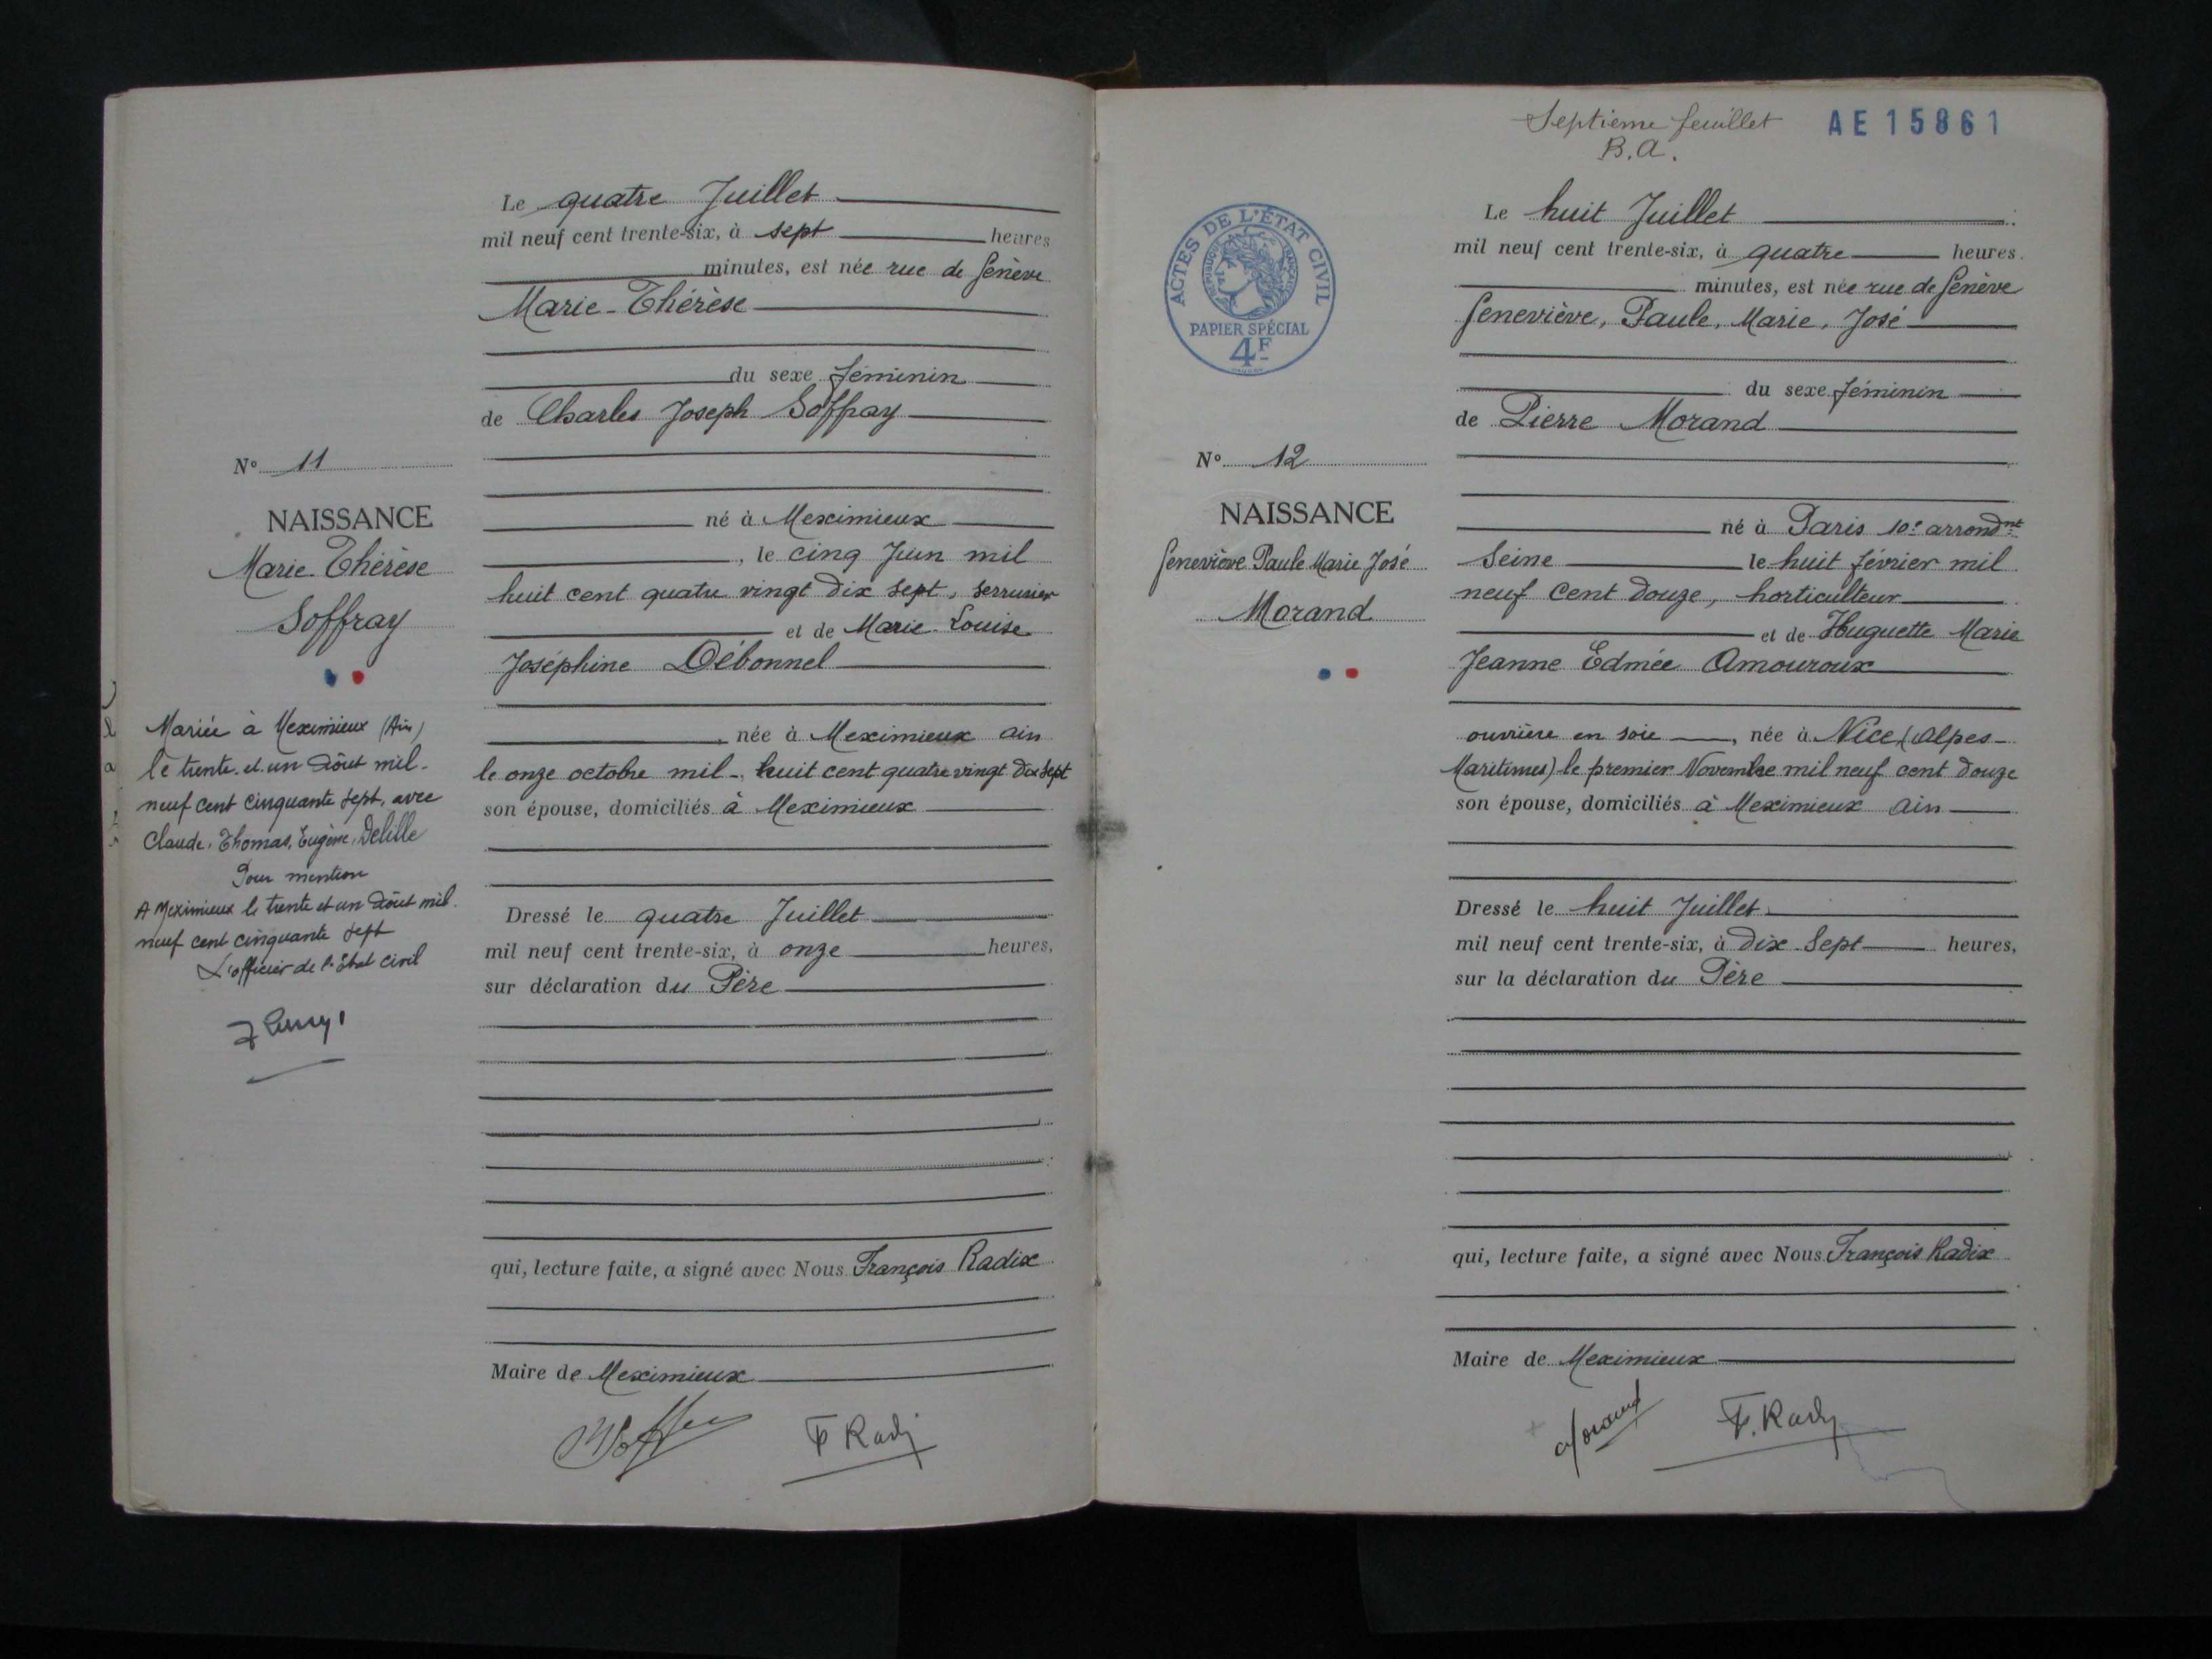 Le quatre Juillet
mil neuf cent trente-six, à sept heures
minutes, est née rue de Genève
Marie-Thérèse
du sexe féminin
de Charles Joseph Soffray
N° 11
NAISSANCE
Marie-Thérèse
Soffray
né à Meximieux
, le cinq Juin mil
huit cent quatre vingt dix sept, serrurier
et de Marie-Louise
Joséphine Débonnel
née à Meximieux ain
le onze octobre mil-huit cent quatre vingt dix sept
son épouse, domiciliés à Meximieux
Mariée à Meximieux (Ain)
le trente-et-un Août mil-
neuf cent cinquante sept, avec
Claude, Thomas, Eugène, Delille
Pour mention
A Meximieux le trente et un Août mil-
neuf cent cinquante sept
L'officier de l'Etat civil
Dressé le quatre Juillet
mil neuf cent trente-six, à onze heures,
sur déclaration du Père
qui, lecture faite, a signé avec Nous François Radix
Maire de Meximieux
F Radix
Septième feuillet
B.A.
AE 15861
ACTES DE L'ÉTAT CIVIL
RÉPUBLIQUE FRANÇAISE
PAPIER SPÉCIAL
4F
Le huit Juillet
mil neuf cent trente-six, à quatre heures
minutes, est née rue de Genève
Geneviève, Paule, Marie, José
du sexe féminin
de Pierre Morand
N° 12
NAISSANCE
Geneviève Paule Marie José
Morand
né à Paris 10e arrondnt
Seine le huit février mil
neuf cent douze, horticulteur
et de Huguette Marie
Jeanne Edmée Amouroux
ouvrière en soie, née à Nice (Alpes-
Maritimes) le premier Novembre mil neuf cent douze
son épouse, domiciliés à Meximieux ain
Dressé le huit Juillet
mil neuf cent trente-six, à dix-sept heures,
sur la déclaration du Père
qui, lecture faite, a signé avec Nous François Radix
Maire de Meximieux
Morand
F. Radix